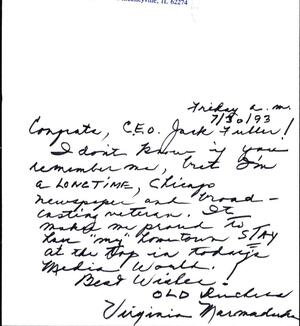 Pinckneyville, IL 62274
Friday a.m.
7/30/93
Congrats, C.E.O. Jack Fuller!
I don't know if you
remember me, but I'm
a LONGTIME, Chicago
newspaper and broad-
casting veteran. It
makes me proud to
have "my" hometown STAY
at the top in today's
Media World!
Best Wishes.
OLD Duchess
Virginia Marmaduke